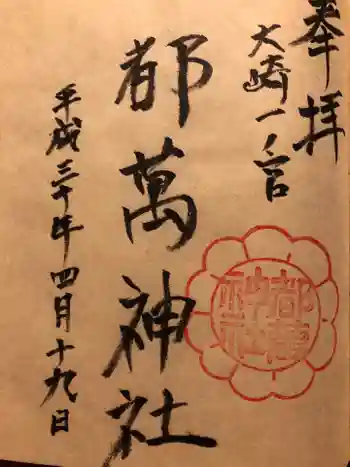 奉拝
大崎一ノ宮
都萬神社
平成三十年四月十九日
都萬
神社